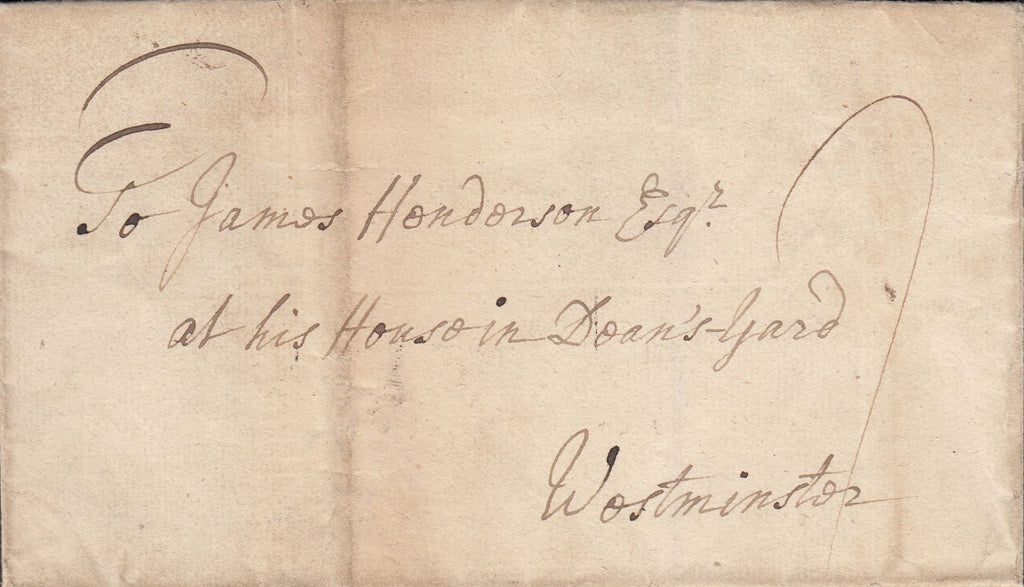 To James Henderson Esqr.
at his House in Dean's-Yard
Westminster